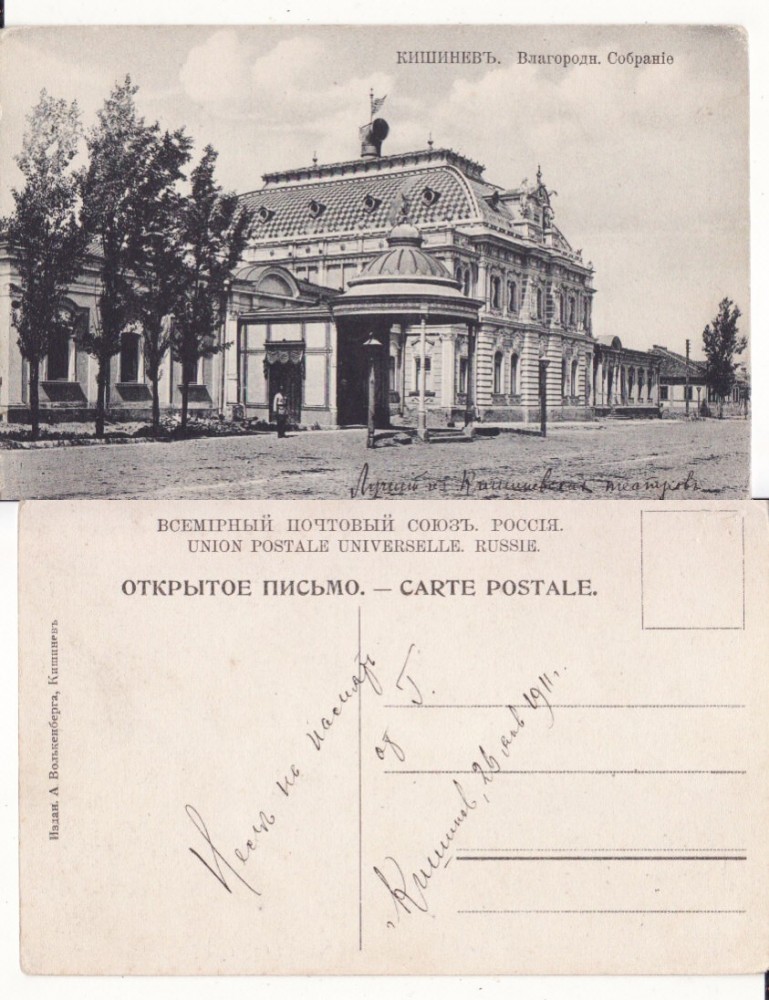 КИШИНЕВЪ. Благородн. Собранiе
Кишиневских театровъ
ВСЕМIРНЫЙ ПОЧТОВЫЙ СОЮЗЪ. РОССIЯ.
UNION POSTALE UNIVERSELLE. RUSSIE.
ОТКРЫТОЕ ПИСЬМО. — CARTE POSTALE.
Издан. А Волькенберга, Кишиневъ
на память
от Г.
Кишинев, 26 янв 1911 г.